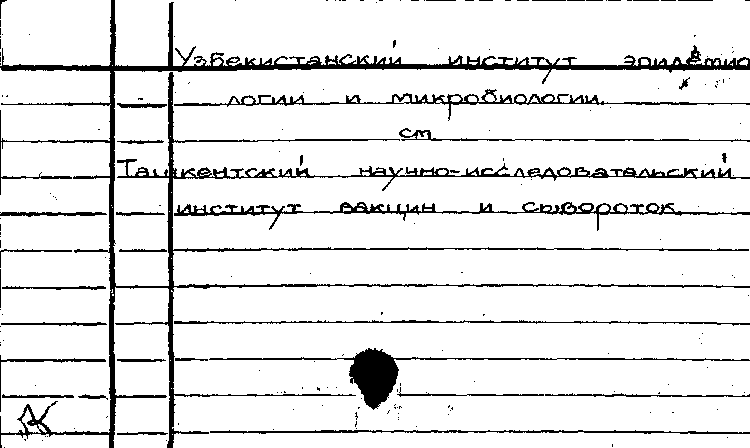 Узбекистанский институт эпидемио
логии и микробиологии.
см
Ташкентский научно-исследовательский
институт вакцин и сывороток.